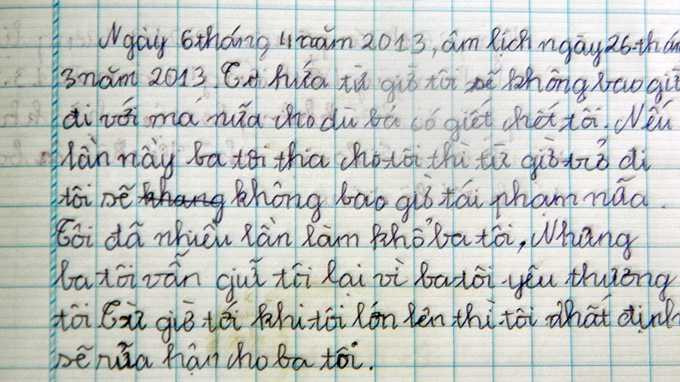 Ngày 6 tháng 4 năm 2013, âm lịch ngày 26 thán
3 năm 2013. Tôi hứa từ giờ tôi sẽ không bao giờ
đi với má nữa cho dù bá có giết chết tôi. Nếu
lần này ba tôi tha cho tôi thì từ giờ trở đi
tôi sẽ khang không bao giờ tái phạm nữa.
Tôi đã nhiều lần làm khổ ba tôi, Nhưng
ba tôi vẫn giữ tôi lại vì ba tôi yêu thương
tôi Từ giờ tới khi tôi lớn lên thì tôi nhất định
sẽ rửa hận cho ba tôi.